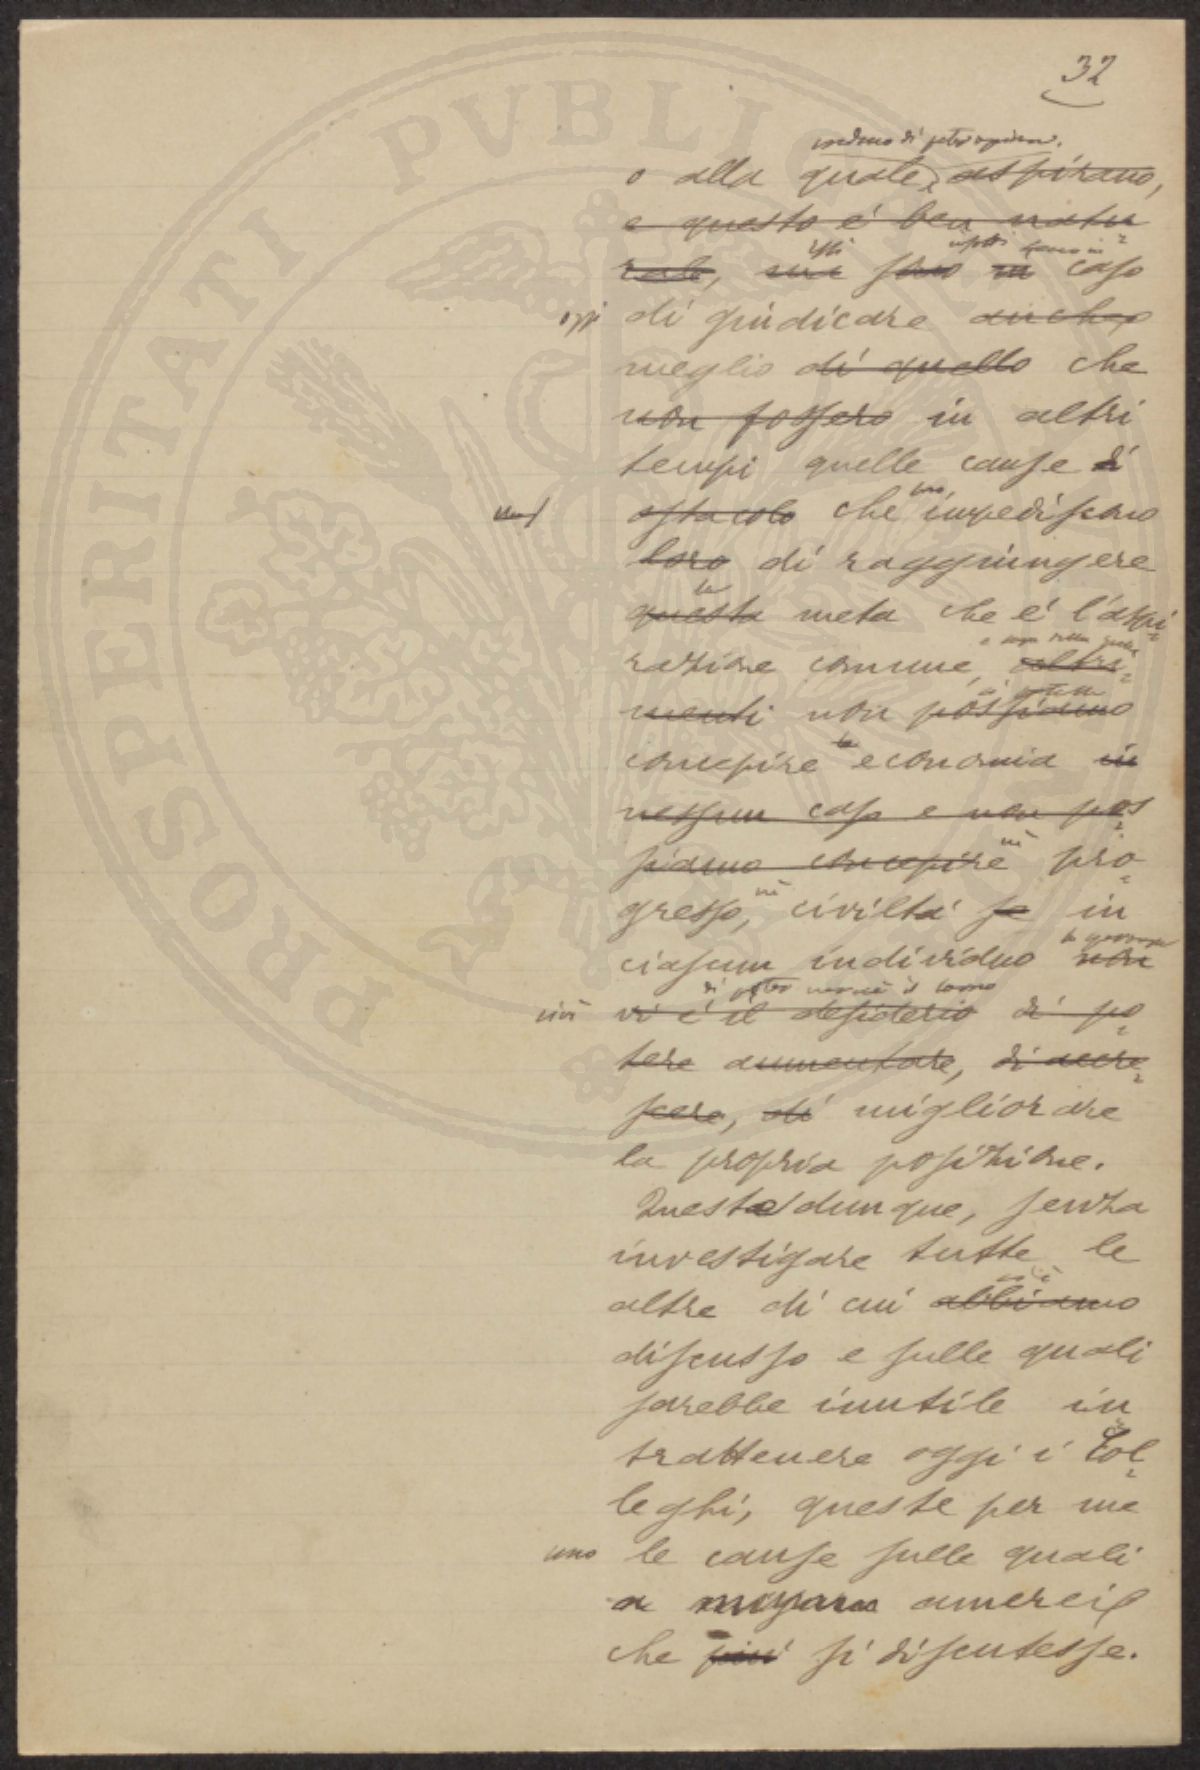 32
o alla quale aspirano,
e questo è ben natu
rale, essi sono in caso
oggi di giudicare anche
meglio di quello che
non fossero in altri
tempi quelle cause di
ostacolo che impediscono
loro di raggiungere
questa meta che è l'aspi
razione comune, altri
menti non possiamo
concepire economia in
nessun caso e non pos
siamo concepire nè pro
gresso, nè civiltà se in
ciascun individuo non
vi è il desiderio di po
tere aumentare, di accre
scere, di migliorare
la propria posizione.
Queste dunque, senza
investigare tutte le
altre di cui abbiamo
discusso e sulle quali
sarebbe inutile in
trattenere oggi i Col
leghi, queste per me
sono le cause sulle quali
a amerei
che più si discutesse.
PROSPERITATI PVBLICAE